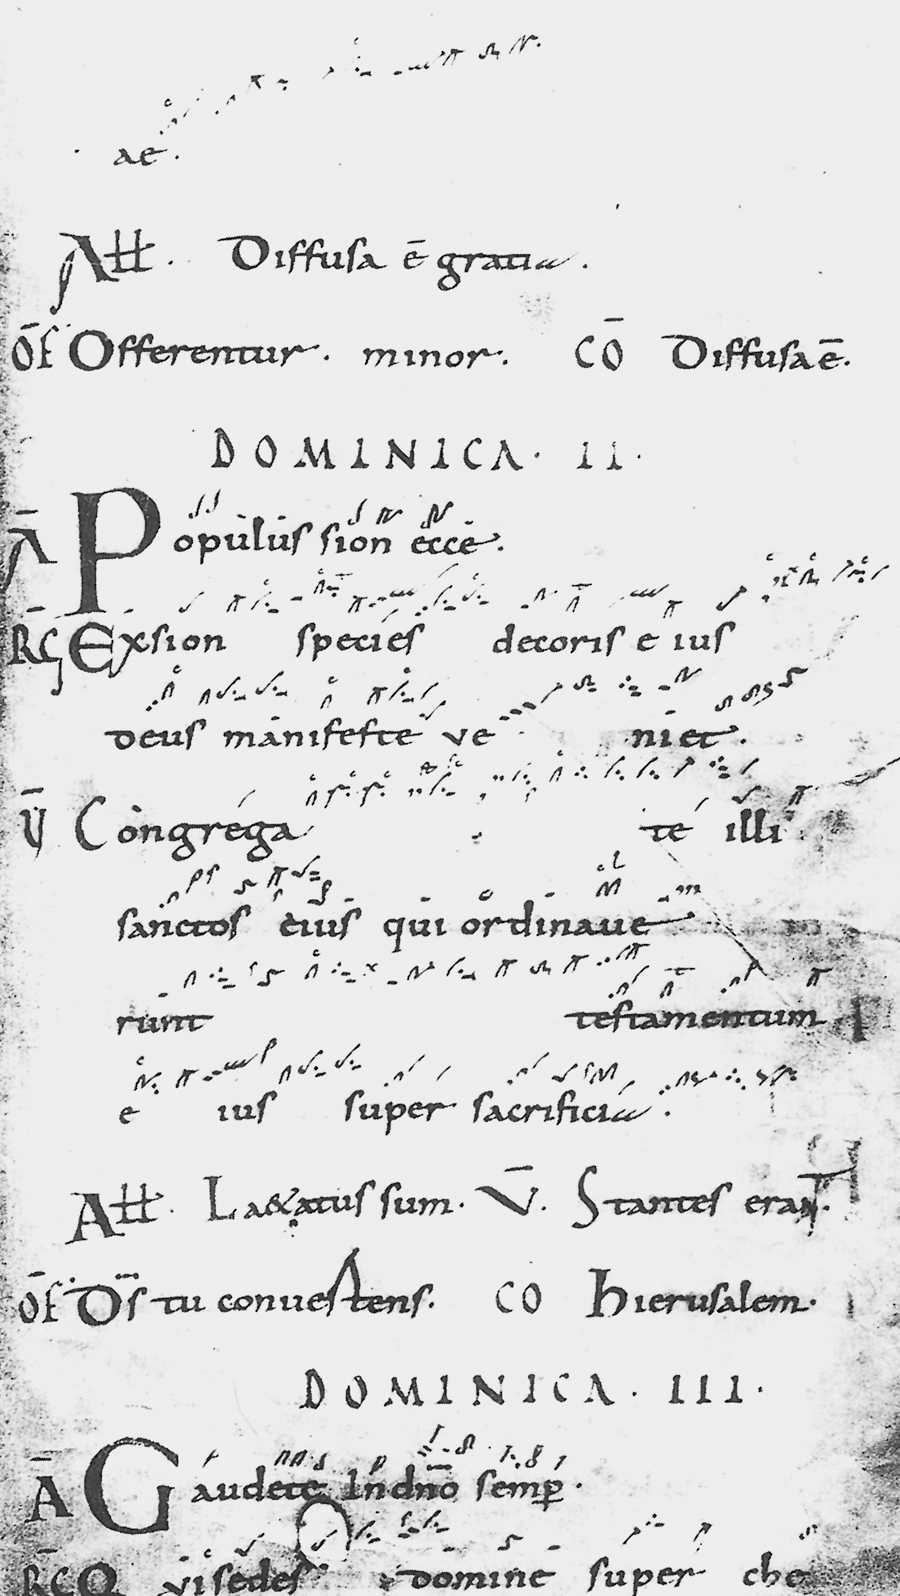 ae.
All. Diffusa ē gratia.
OF Offerentur. minor. CŌ Diffusa ē.
DOMINICA. II.
Ā Populus sion ecce.
RG Ex sion species decoris e ius
deus manifeste ve niet.
V̄ Congrega te illi
sanctos eius qui ordinave
runt testamentum
e ius super sacrificia.
All. Laetatus sum. V̄. Stantes erant.
OF D̄s tu convertens. CO hierusalem.
DOMINICA. III.
Ā Gaudete In dn̄o semp̄.
RG Qui sedes domine super che